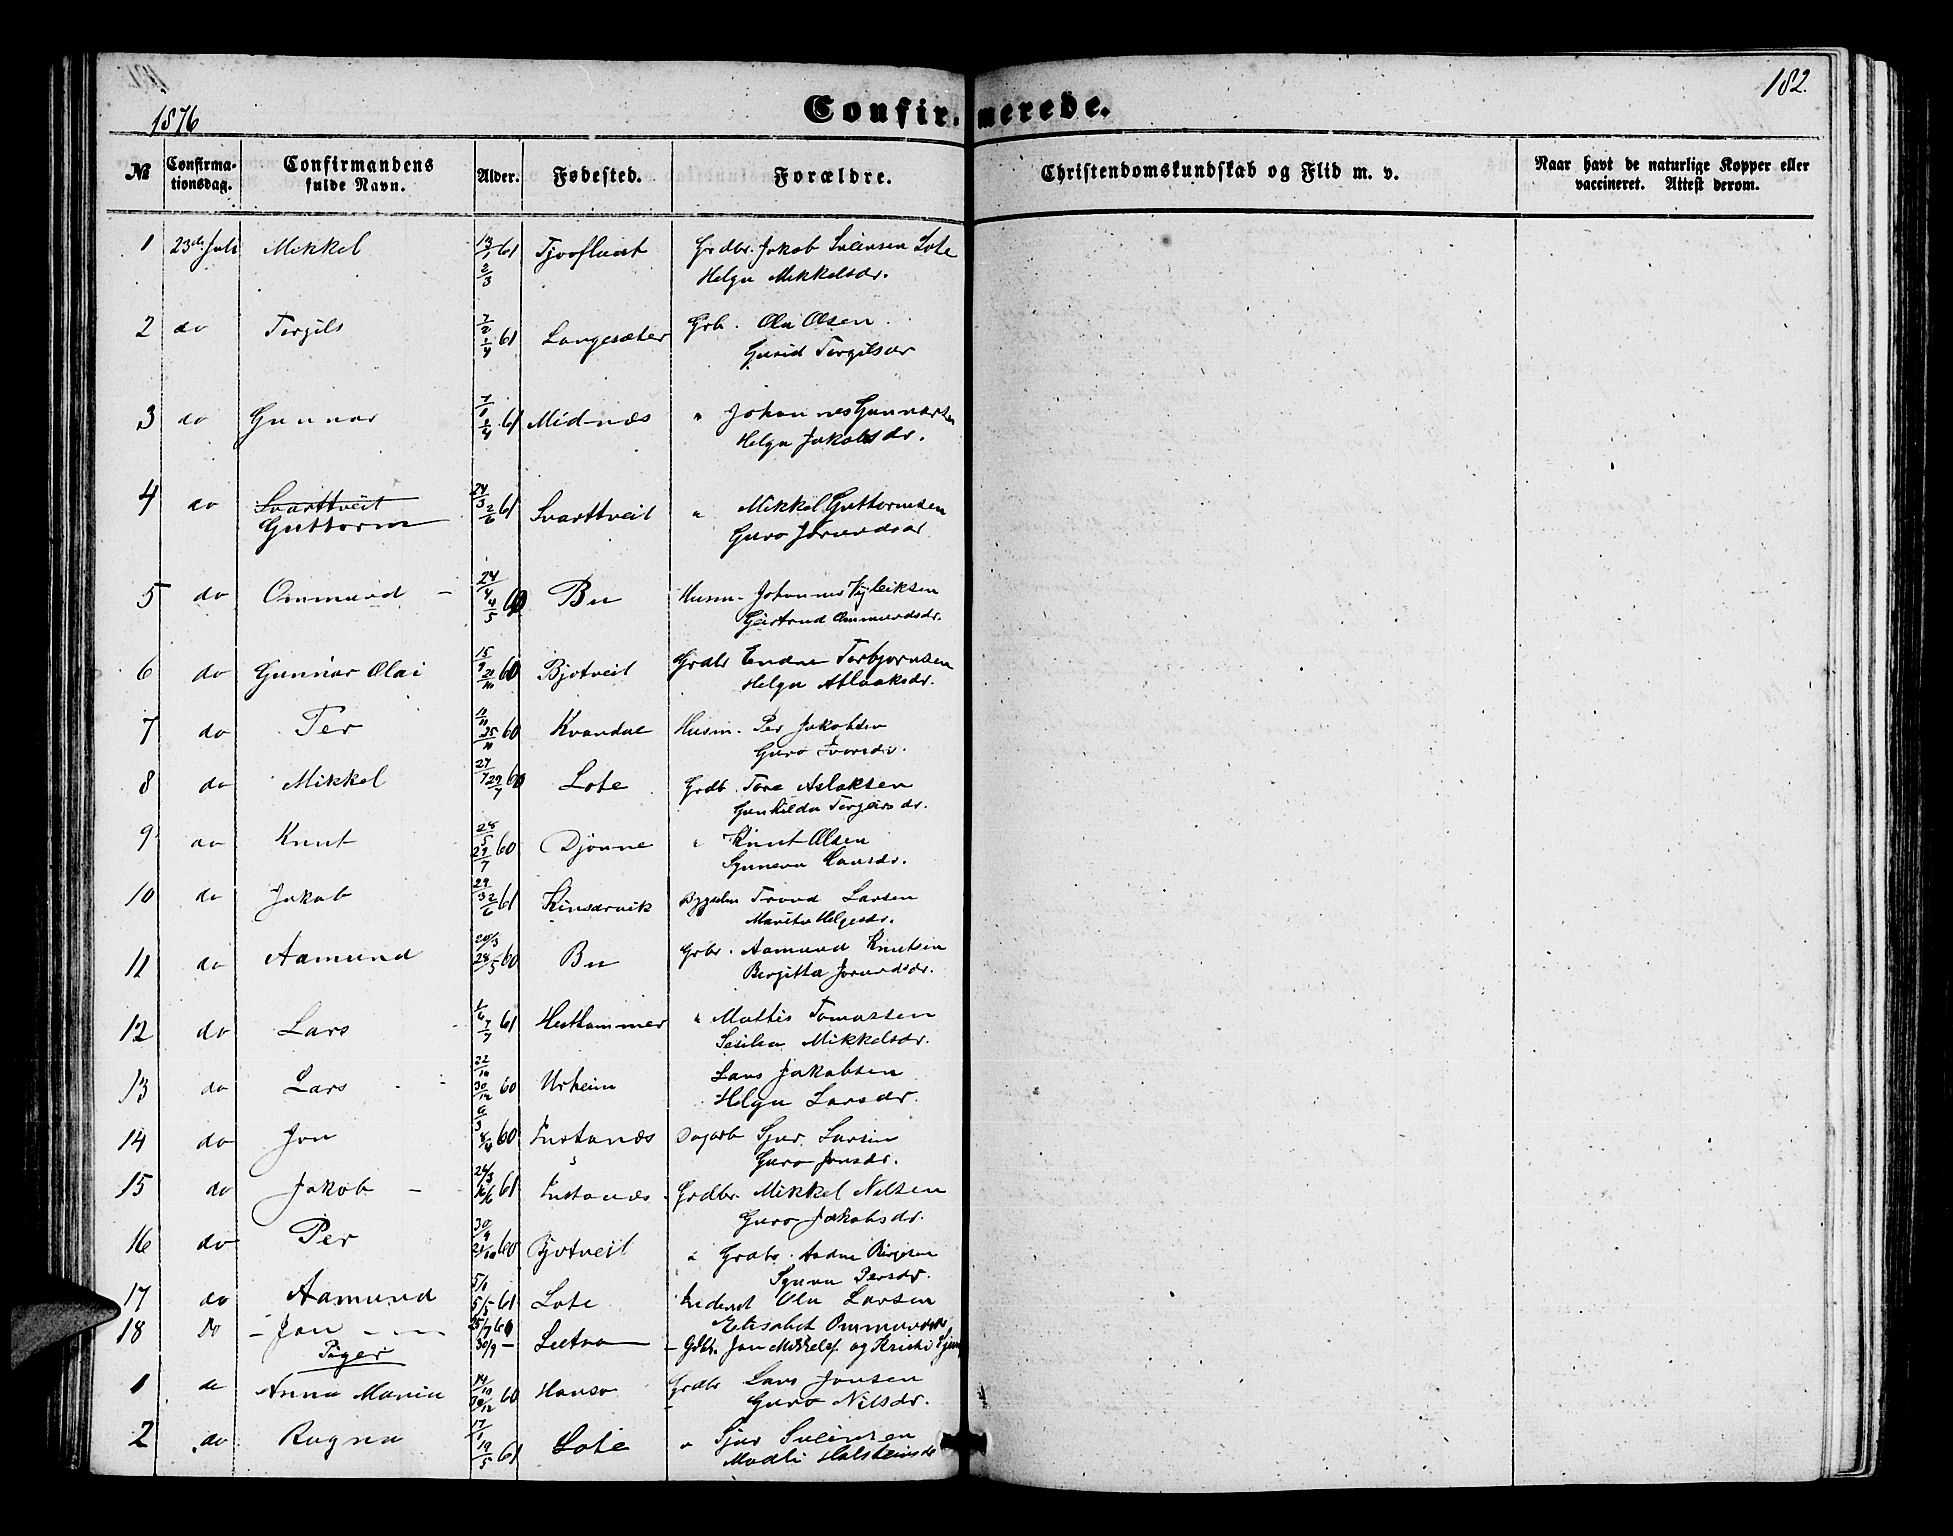 182.
1876
Confirmerede.
№ Confirmationsdag. Confirmandens fulde Navn. Alder. Fødested. Forældre. Christendomskundskab og Flid m. v. Naar havt de naturlige Kopper eller vaccineret. Attest derom.
1 23de Juli Mikkel 13/1 2/3 61 Tjoflaat Grdbr. Jakob Sveinsen Lote
Helga Mikkelsdr.
2 do Torgils 61 Langesæter Grb. Ola Olsen
Gurid Torgilsdr
3 do Gunnar 61 Midnæs " Johannes Gunnarsen
Helga Jakobsdr.
4 do Svarttveit 24/3 2/6 61 Svarttveit " Mikkel Guttormsen
Guttorm Guro Jorundsdr
5 do Ommund - 24/4 4/5 60 Bu Husm. Johannes Vigleiksen
Geirtrud Ommundsdr.
6 do Gunnar Olai 15/9 21/10 60 Bjotveit Grdbr Endre Torbjornsen
Helga Aslaaksdr.
7 do Per 25/11 60 Kvandal Husm. Per Jakobsen
Guro Ivarsdr.
8 do Mikkel 27/7 29/7 60 Lote Grdb. Tore Aslaksen
Gunhilda Torgeirsdr.
9 do Knut 28/5 29/7 60 Djønne " Knut Olsen
Synneva Larsdr.
10 do Jakob 29/3 2/6 61 Kinsarvik Bygselm Trond Larsen
Marita Helgesdr.
11 do Aamund 20/3 28/5 60 Bu Grbr. Aamund Knutsen
Birgitta Jorundsdr.
12 do Lars 1/6 7/7 61 Hesthammer " Mattis Tomassen
Sesilia Mikkelsdr.
13 do Lars 22/10 30/12 60 Urheim Lars Jakobsen
Helga Larsdr.
14 do Jon 60 Instanæs Dagarb Sjur Larsen
Guro Jonsdr.
15 do Jakob - 26/3 16/6 61 Instanæs Grdbr. Mikkel Nilsen
Guro Jakobsdr.
16 do Per 30/9 21/10 60 Bjotveit " Grdbr. Birgesen
Synva Persdr.
17 do Aamund 5/1 5/5 61 Lote Inderst Ola Larsen
Elisabet Ommundsdr
18 Do - Jon 25/7 60 30/9 - Lutro - Gdbr. Jon Mikkels. og Kristi
Piger
1 do Anna Maria 14/10 60 Hauso Grdbr Lars Jonsen
Guro Nilsdr.
2 do Ragna 17/1 19/5 61 Lote " Sjur Sveinsen
Madli Halsteinsdr